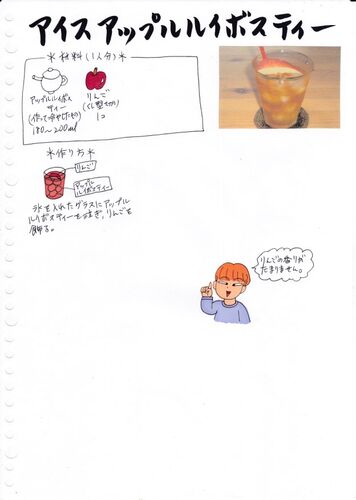 アイスアップルルイボスティー
＊材料(1人分)＊
アップルルイボス
ティー
(作って冷やしたもの)
180〜200ml
りんご
(くし型切り)
1コ
＊作り方＊
りんご
アップル
ルイボスティー
氷を入れたグラスにアップル
ルイボスティーを注ぎ、りんごを
飾る。
りんごの香りが
たまりません。